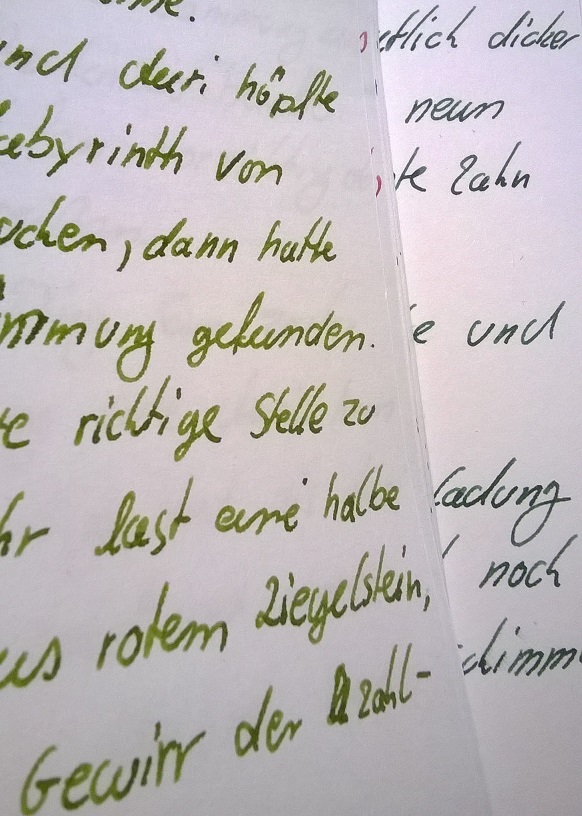 und dann höpfte
Labyrinth von
uchen, dann hatte
immung gefunden.
te richtige Stelle zu
hr fast eine halbe
aus rotem Ziegelstein,
Gewirr der zahl-
utlich dicker
neun
te Zahn
e und
ladung
noch